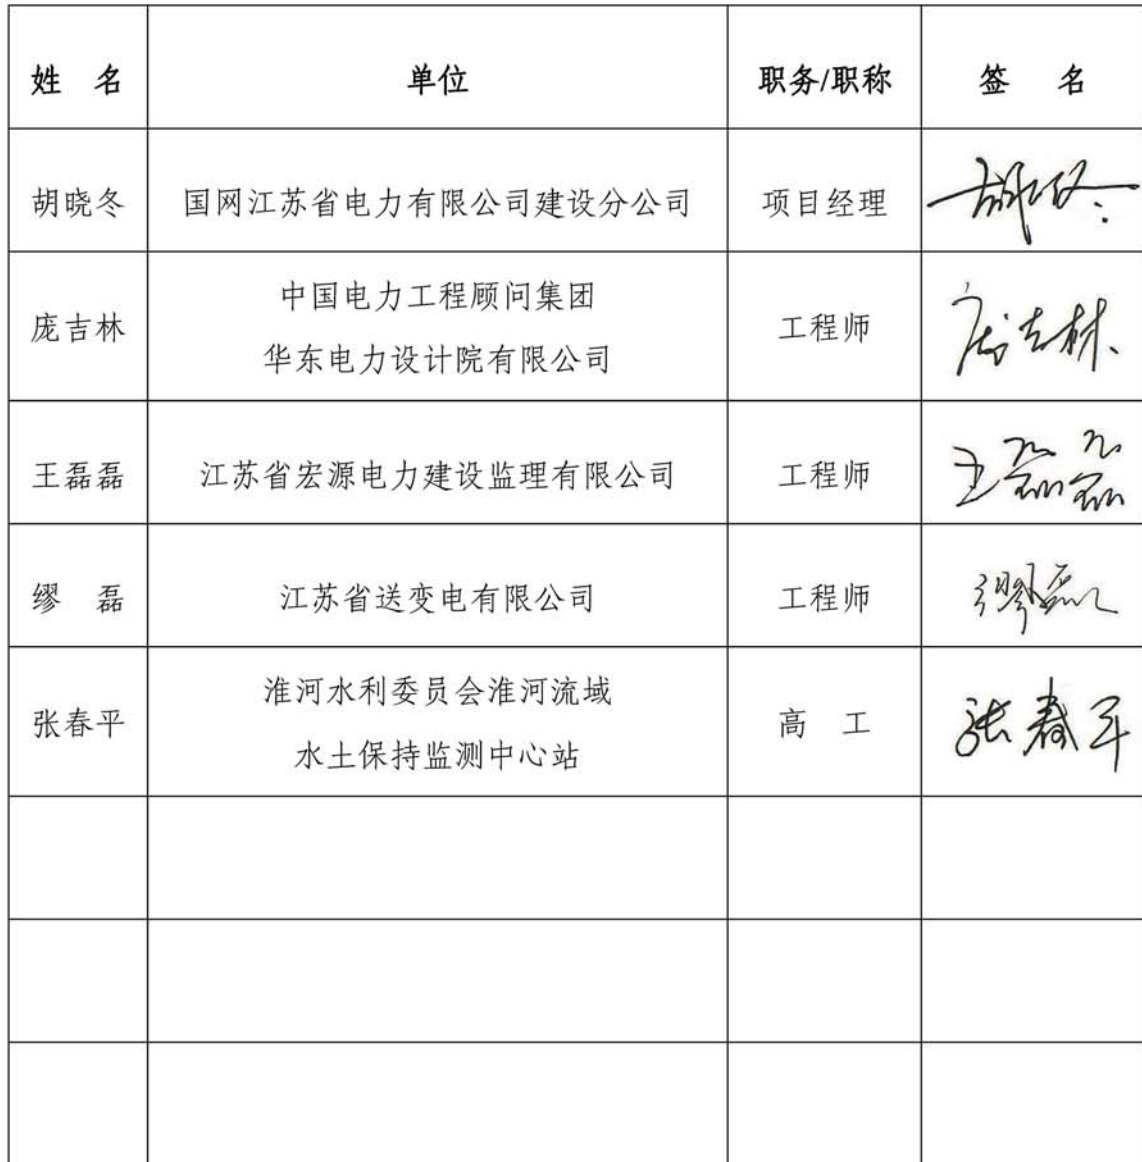 姓 名 单位 职务/职称 签 名
胡晓冬 国网江苏省电力有限公司建设分公司 项目经理 胡晓冬
庞吉林 中国电力工程顾问集团
华东电力设计院有限公司 工程师 庞吉林
王磊磊 江苏省宏源电力建设监理有限公司 工程师 王磊磊
缪 磊 江苏省送变电有限公司 工程师 缪磊
张春平 淮河水利委员会淮河流域
水土保持监测中心站 高 工 张春平